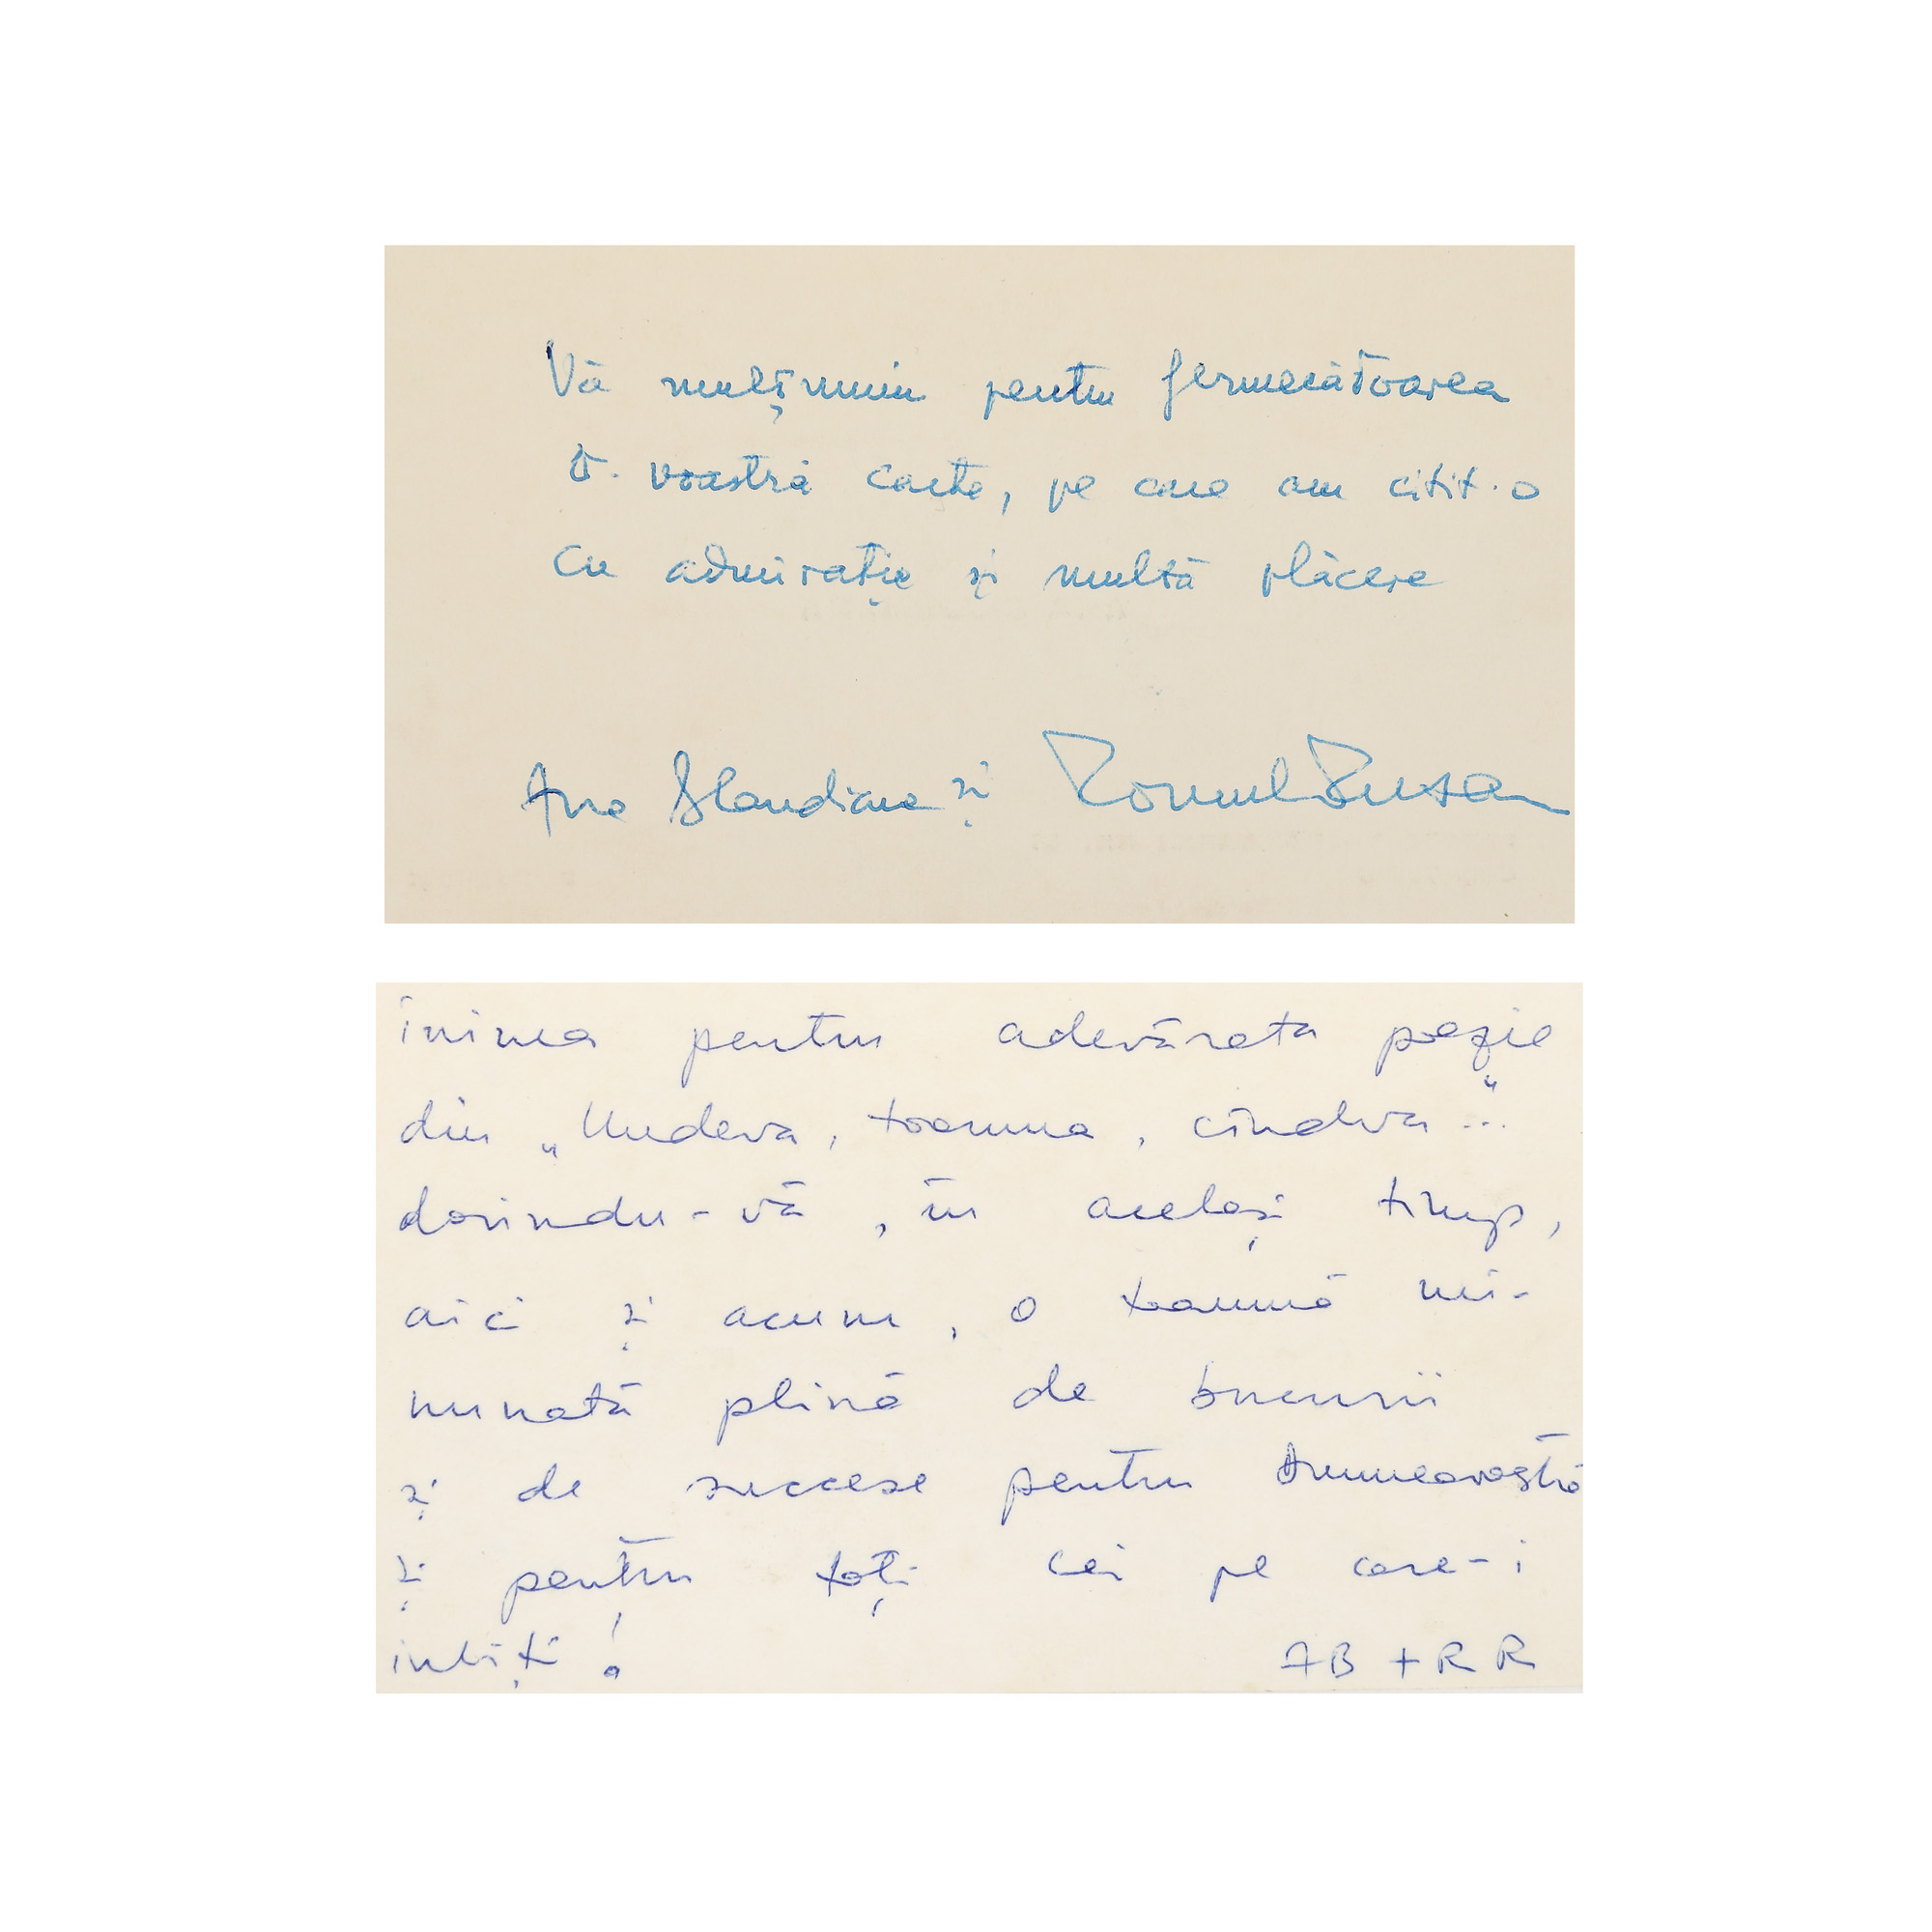 Vă mulțumim pentru fermecătoarea
D. voastră carte, pe care am citit-o
cu admirație și multă plăcere
Ana Blandiana și Romul Rusan
inima pentru adevărata poezie
din „Undeva, toamna, cîndva..."
dorindu-vă, în același timp,
aici și acum, o toamnă mi-
nunată plină de bucurii
și de succese pentru Dumneavoastră
și pentru toți cei pe care-i
iubiți!
AB + RR